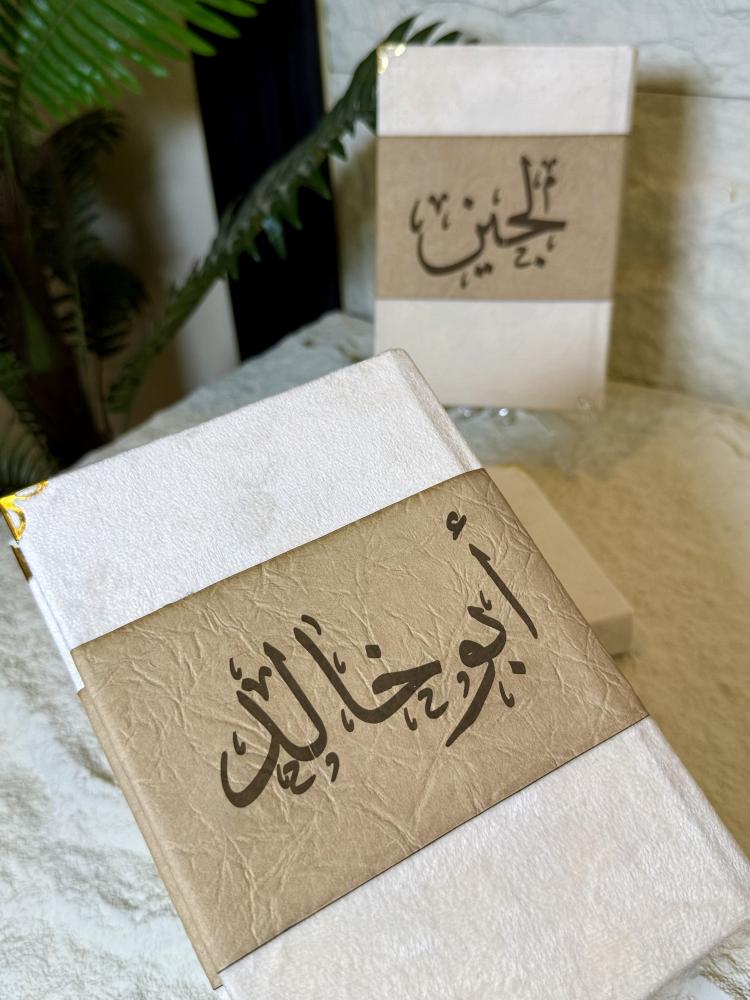 لجين
أبو خالد